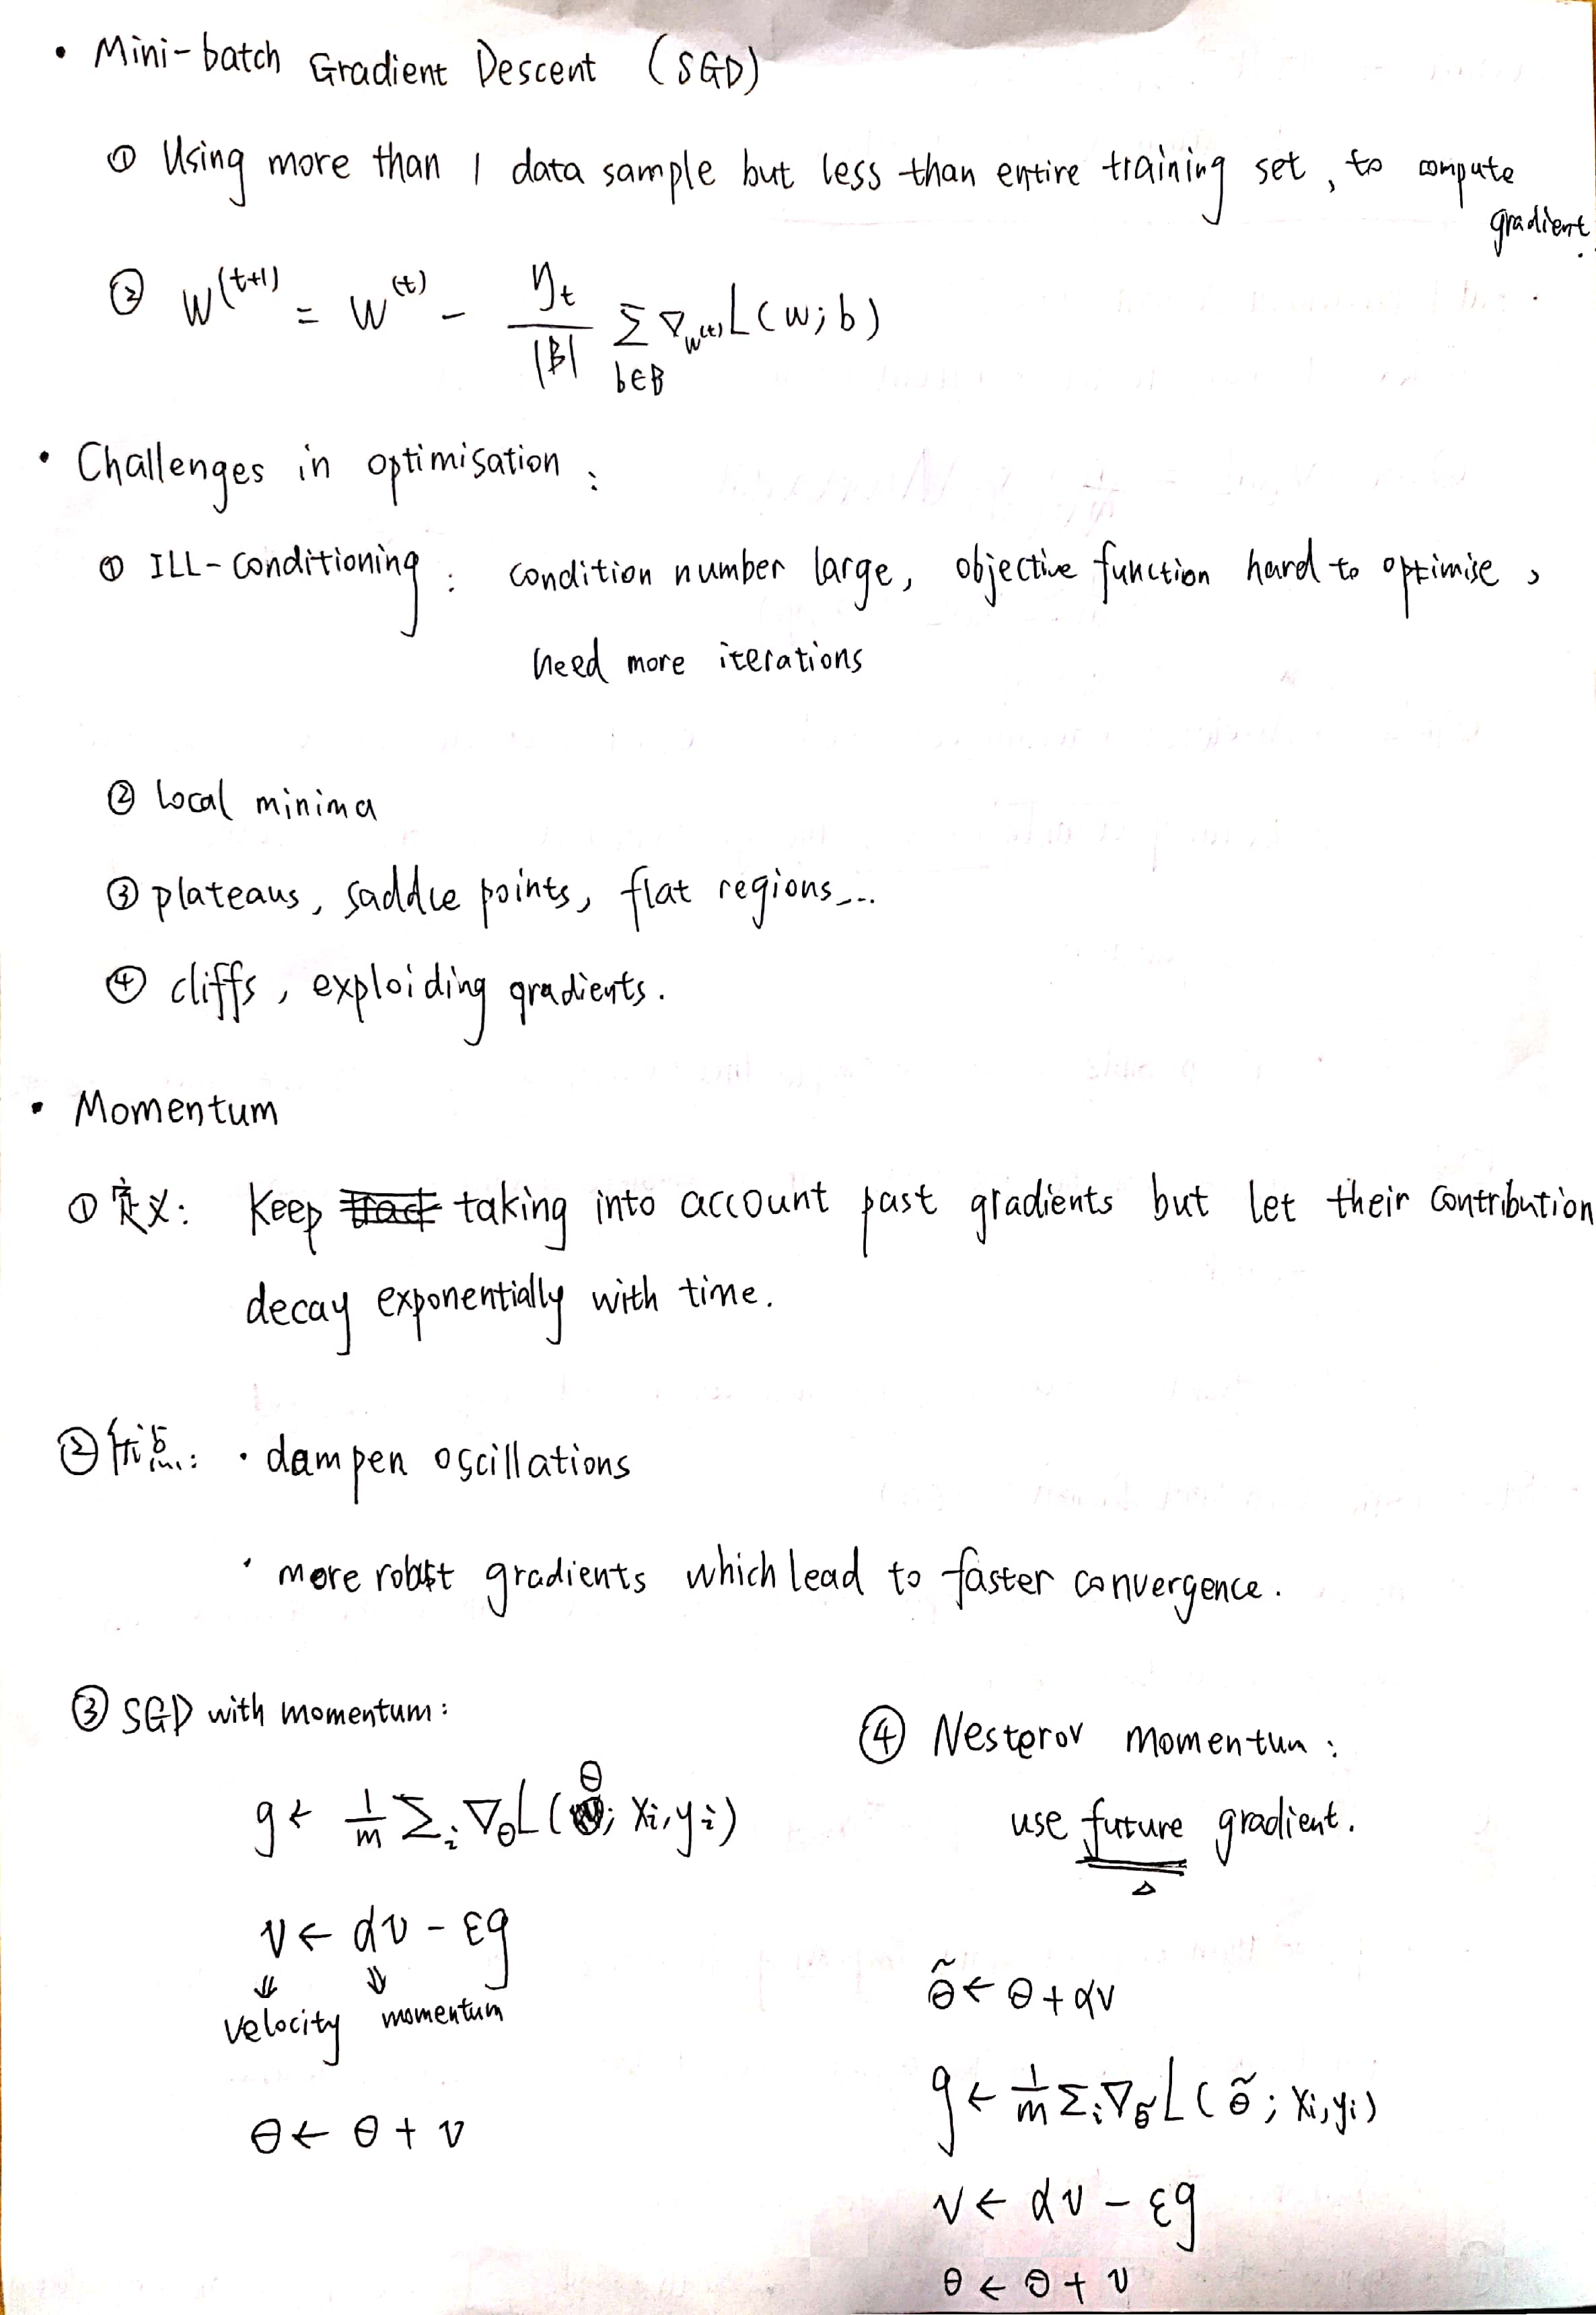 • Mini-batch Gradient Descent (SGD)
① Using more than 1 data sample but less than entire training set, to compute
gradient.
② W^(t+1) = W^(t) - η_t/|B| Σ_{b∈B} ∇_{W^(t)} L(w; b)
• Challenges in optimisation :
① ILL-Conditioning : condition number large, objective function hard to optimise,
need more iterations
② local minima
③ plateaus, saddle points, flat regions...
④ cliffs, exploiding gradients.
• Momentum
① 定义: Keep taking into account past gradients but let their contribution
decay exponentially with time.
② 优点: · dampen oscillations
· more robust gradients which lead to faster convergence.
③ SGD with momentum:
g ← 1/m Σ_i ∇_θ L(θ; xi, yi)
v ← αv - εg
velocity momentum
θ ← θ + v
④ Nesterov momentun :
use future gradient.
θ̃ ← θ + αv
g ← 1/m Σ_i ∇_θ̃ L(θ̃; xi, yi)
v ← αv - εg
θ ← θ + v